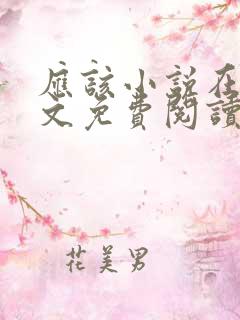 應該小説在
文免費閱讀
花美男